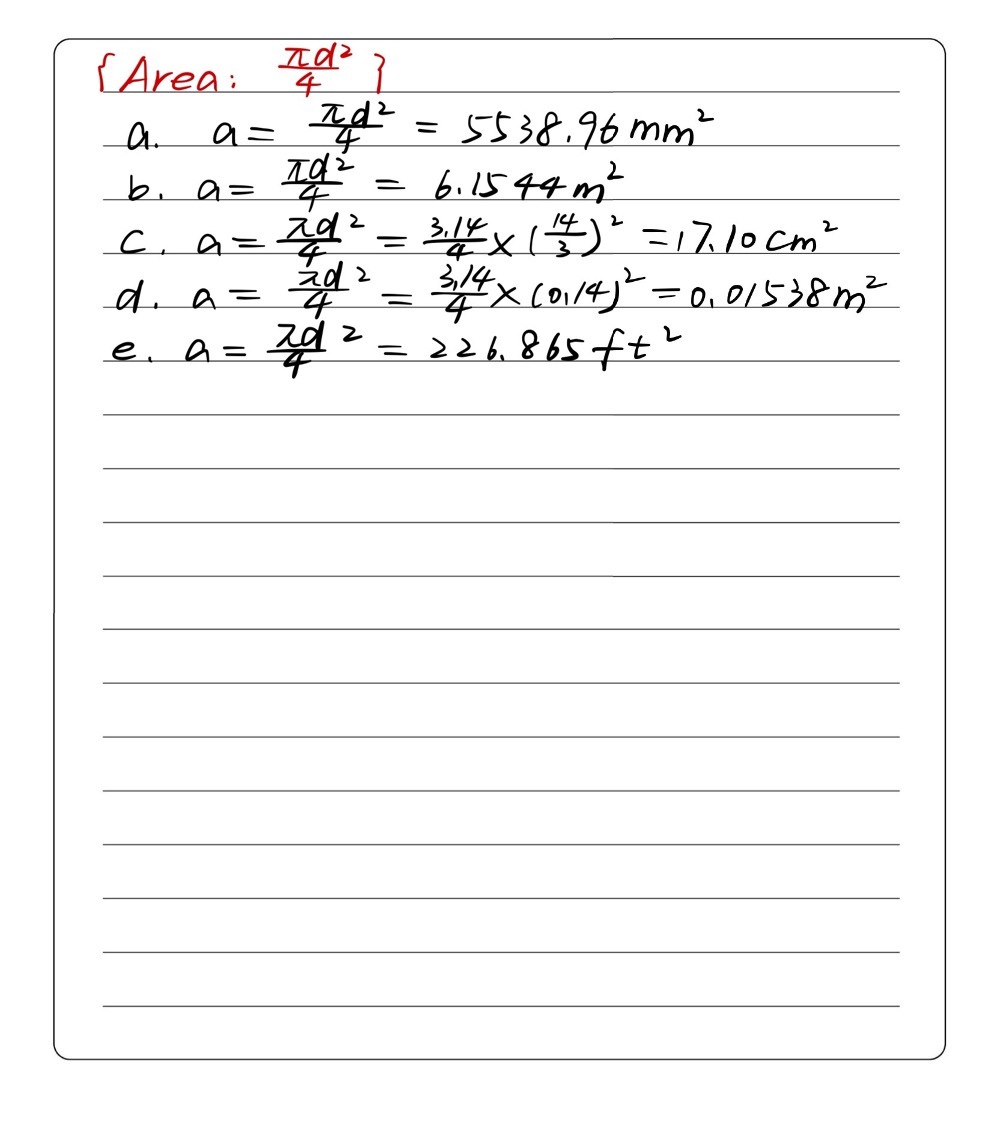 {Area: πd²/4}
a. a = πd²/4 = 5538.96 mm²
b. a = πd²/4 = 6.1544 m²
c. a = πd²/4 = 3.14/4 × (14/3)² = 17.10 cm²
d. a = πd²/4 = 3.14/4 × (0.14)² = 0.01538 m²
e. a = πd²/4 = 226.865 ft²